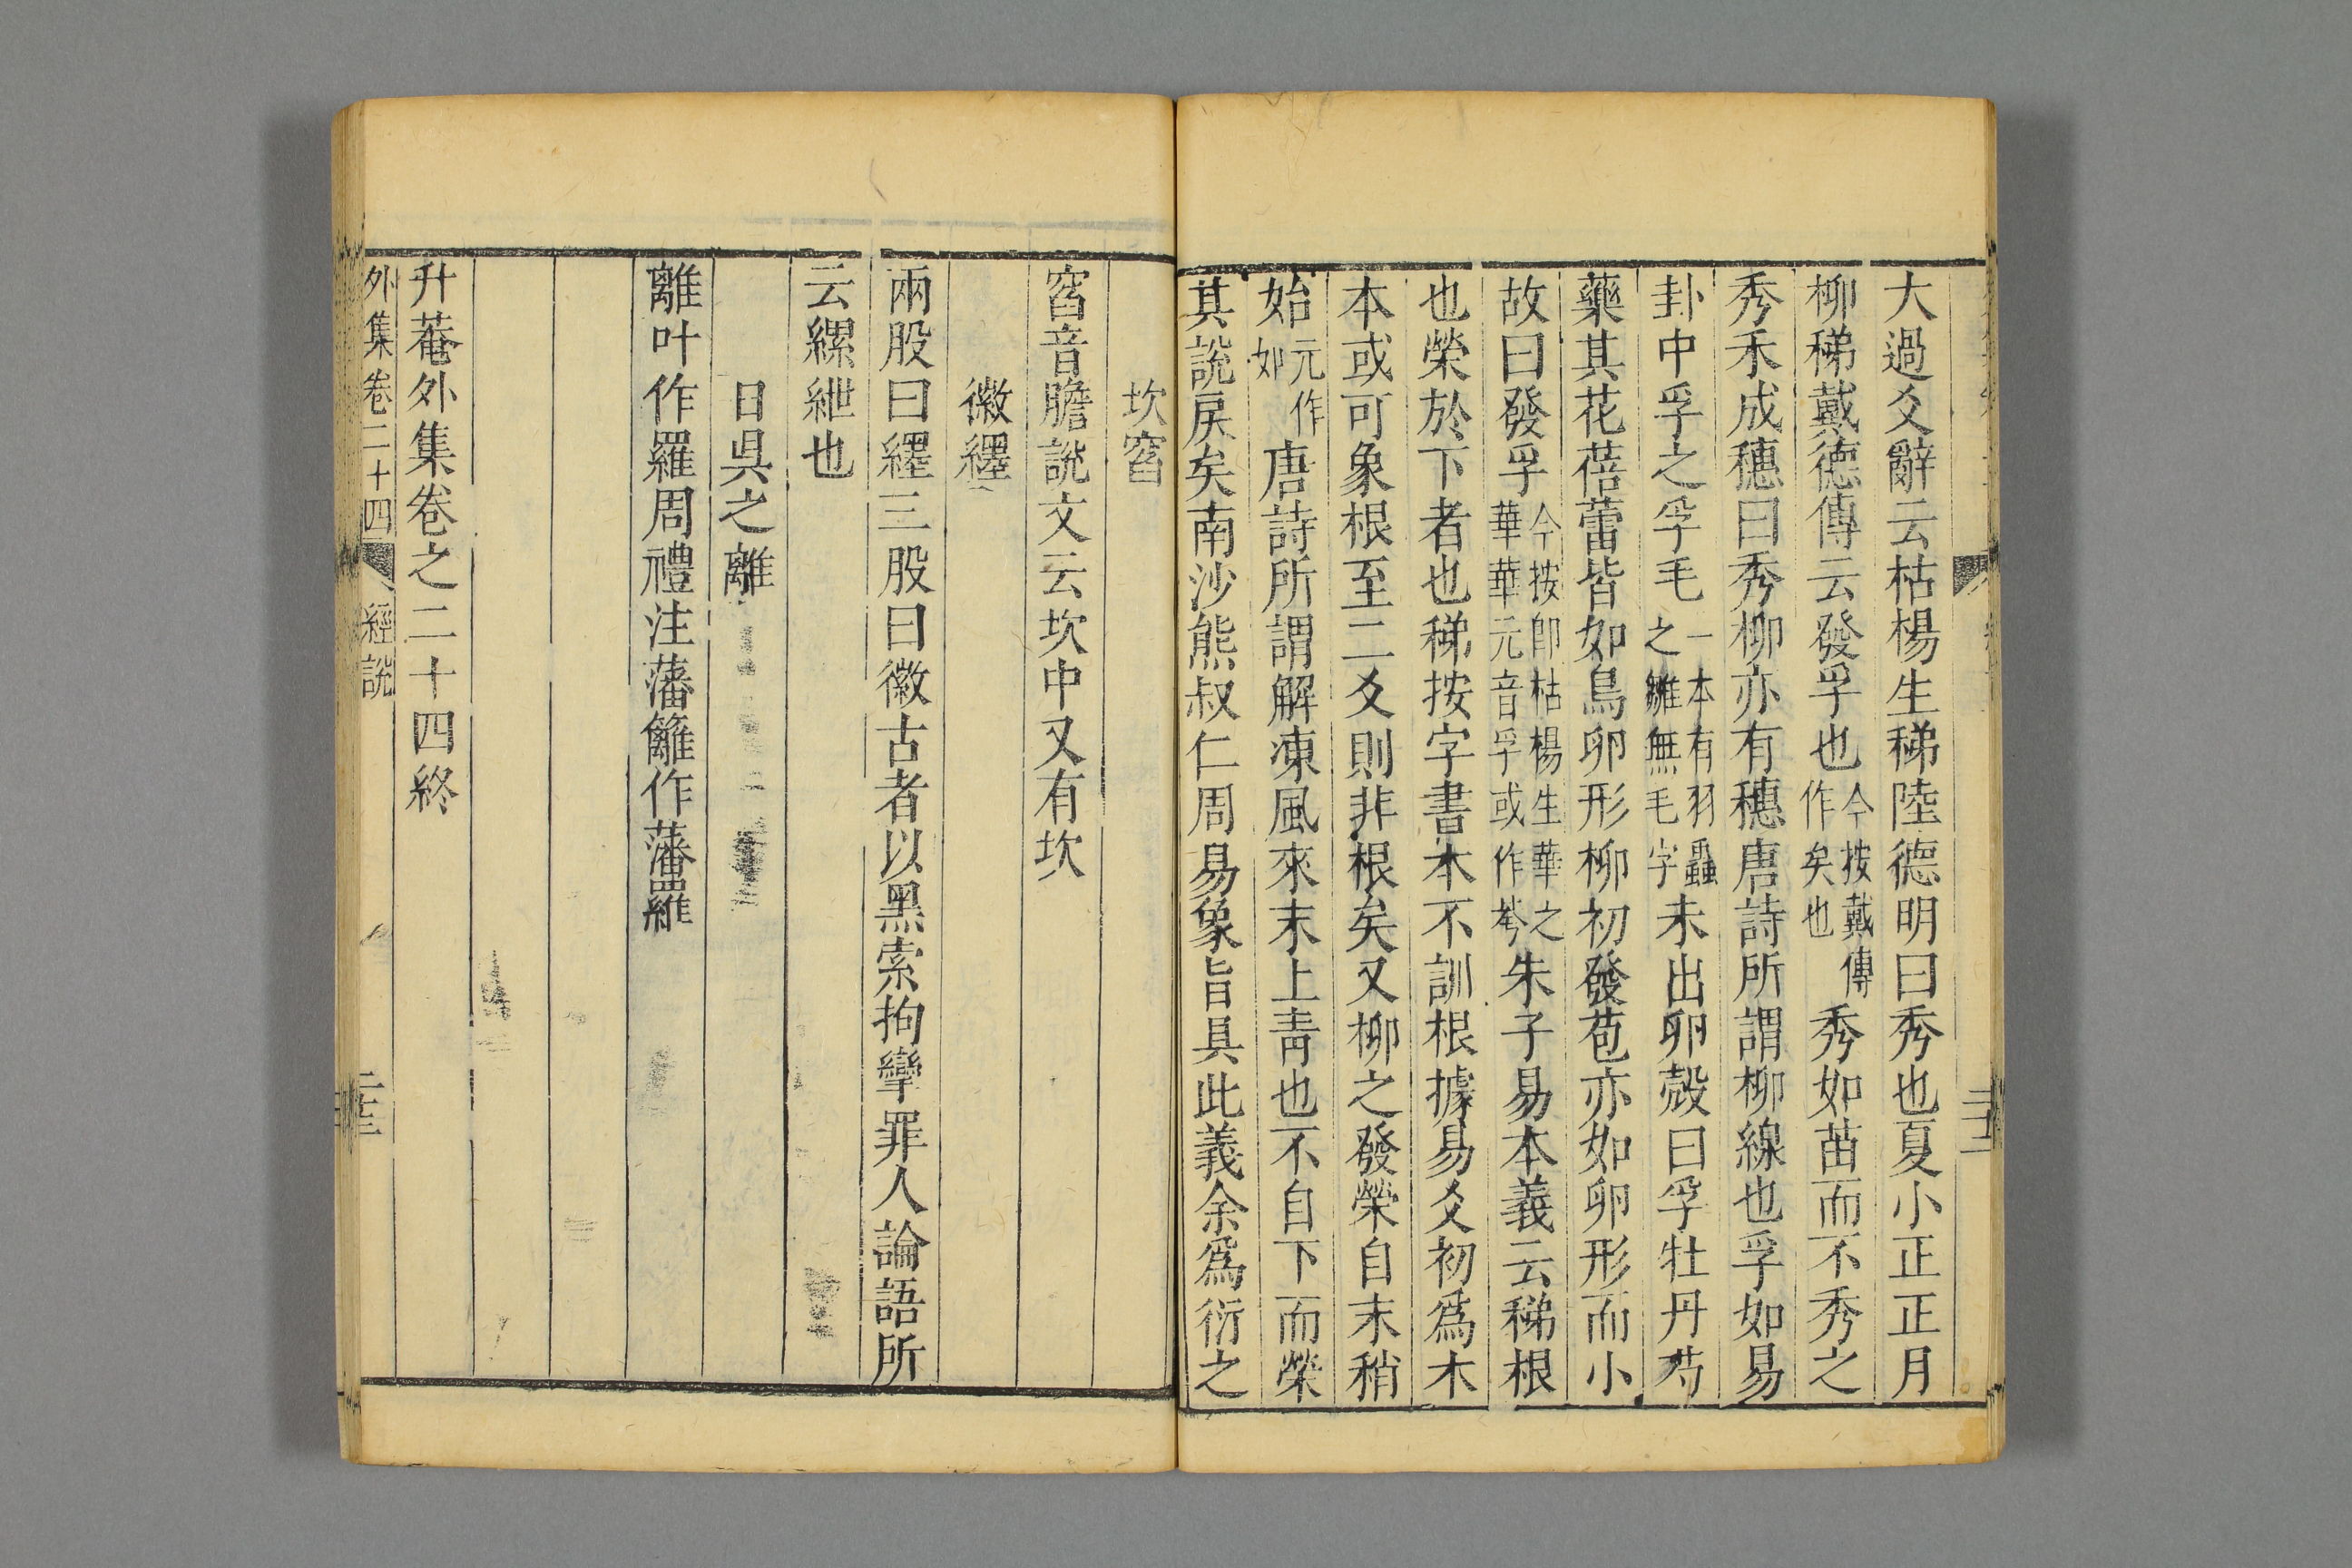 大過爻辭云枯楊生稊陸德明曰秀也夏小正正月
柳稊戴德傳云發孚也今按戴傳作矣也秀如苗而不秀之
秀禾成穗曰秀柳亦有穗唐詩所謂柳線也孚如易
卦中孚之孚毛一本有羽蟲之雛無毛字未出卵殼曰孚牡丹芍
藥其花蓓蕾皆如鳥卵形柳初發苞亦如卵形而小
故曰發孚今按卽枯楊生華之華華元音孚或作荂朱子易本義云稊根
也榮於下者也稊按字書本不訓根據易爻初爲木
本或可象根至二爻則非根矣又柳之發榮自末稍
始元作如唐詩所謂解凍風來末上靑也不自下而榮
其說戾矣南沙熊叔仁周易象旨具此義余爲衍之
坎窞
窞音膽說文云坎中又有坎
徽纆
兩股曰纆三股曰徽古者以黑索拘攣罪人論語所
云縲紲也
日昃之離
離叶作羅周禮注藩籬作藩羅
升菴外集卷之二十四終
外集卷二十四 經說